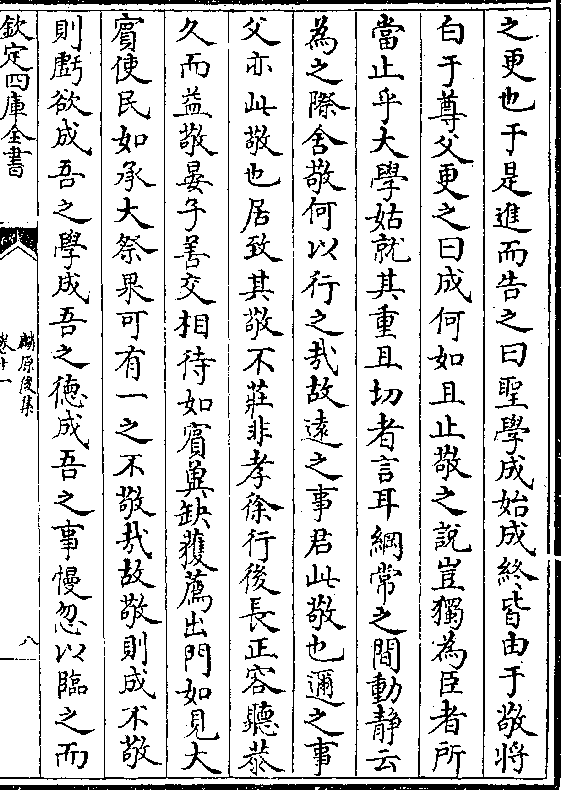 之更也于是進而告之曰聖學成始成終皆由于敬將
白于尊父更之曰成何如且止敬之說豈獨為臣者所
當止乎大學姑就其重且切者言耳綱常之間動靜云
為之際舍敬何以行之哉故遠之事君此敬也邇之事
父亦此敬也居致其敬不莊非孝徐行後長正容聽恭
久而益敬晏子善交相待如賓冀缺獲薦出門如見大
賓使民如承大祭果可有一之不敬哉故敬則成不敬
則虧欲成吾之學成吾之德成吾之事慢忽以臨之而
欽定四庫全書
麟原後集
卷十一
八